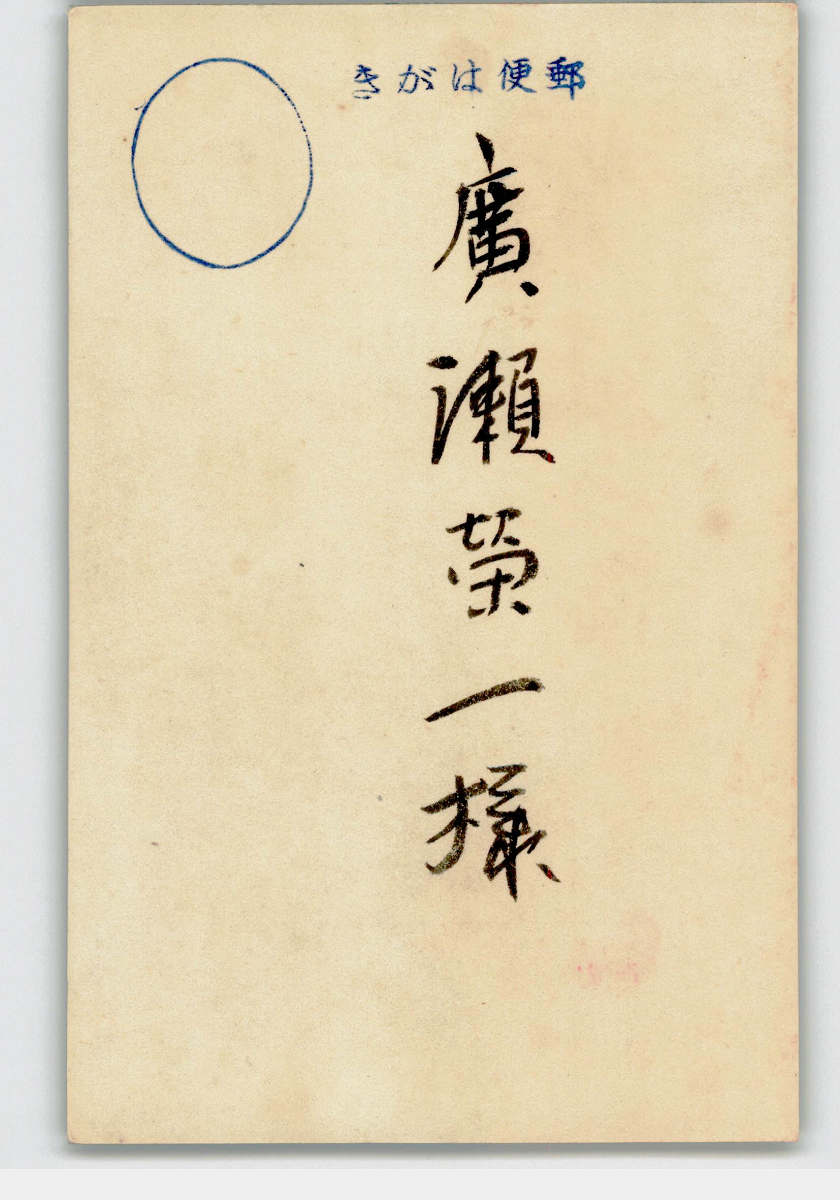 郵便はがき
廣瀬榮一様